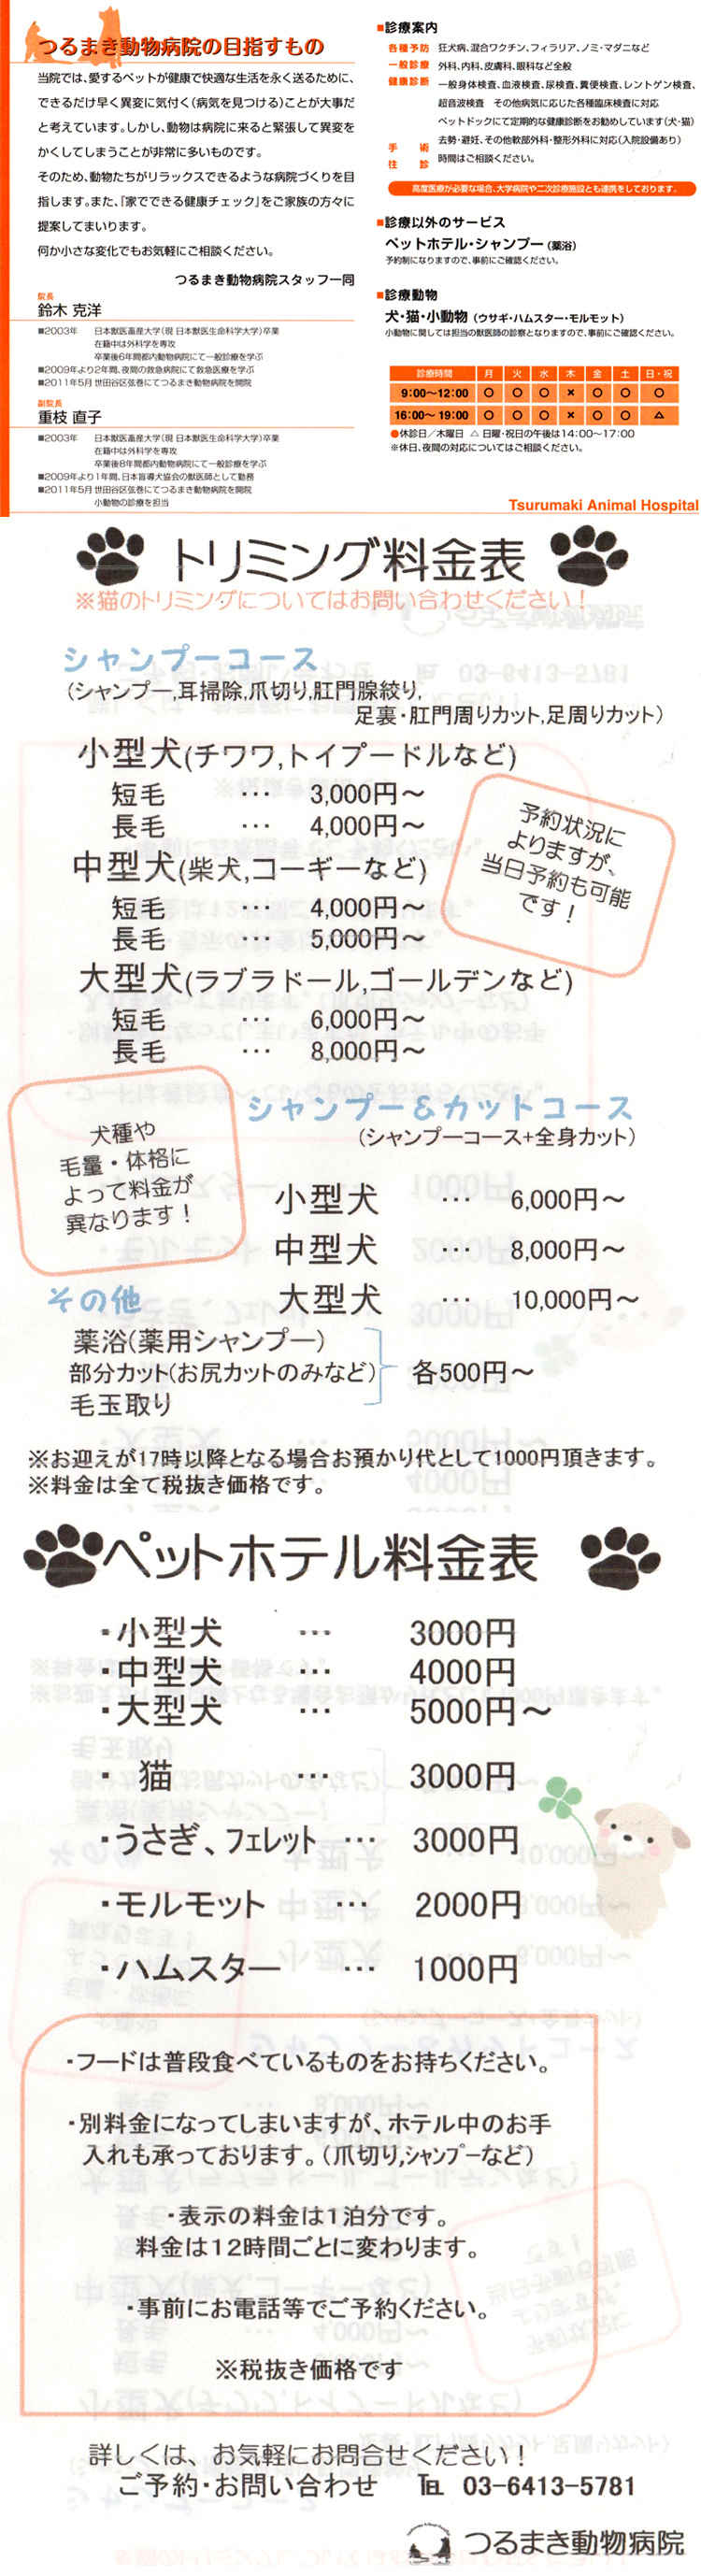 つるまき動物病院の目指すもの
当院では、愛するペットが健康で快適な生活を永く送るために、
できるだけ早く異変に気付く(病気を見つける)ことが大事だ
と考えています。しかし、動物は病院に来ると緊張して異変を
かくしてしまうことが非常に多いものです。
そのため、動物たちがリラックスできるような病院づくりを目
指します。また、『家でできる健康チェック』をご家族の方々に
提案してまいります。
何か小さな変化でもお気軽にご相談ください。
つるまき動物病院スタッフ一同
院長
鈴木 克洋
■2003年 日本獣医畜産大学(現 日本獣医生命科学大学)卒業
在籍中は外科学を専攻
卒業後6年間都内動物病院にて一般診療を学ぶ
■2009年より2年間、夜間の救急病院にて救急医療を学ぶ
■2011年5月 世田谷区弦巻にてつるまき動物病院を開院
副院長
重枝 直子
■2003年 日本獣医畜産大学(現 日本獣医生命科学大学)卒業
在籍中は外科学を専攻
卒業後8年間都内動物病院にて一般診療を学ぶ
■2009年より1年間、日本盲導犬協会の獣医師として勤務
■2011年5月 世田谷区弦巻にてつるまき動物病院を開院
小動物の診療を担当
■診療案内
各種予防 狂犬病、混合ワクチン、フィラリア、ノミ・マダニなど
一般診療 外科、内科、皮膚科、眼科など全般
健康診断 一般身体検査、血液検査、尿検査、糞便検査、レントゲン検査、
超音波検査 その他病気に応じた各種臨床検査に対応
ペットドックにて定期的な健康診断をお勧めしています(犬・猫)
手術 去勢・避妊、その他軟部外科・整形外科に対応(入院設備あり)
往診 時間はご相談ください。
高度医療が必要な場合、大学病院や二次診療施設とも連携をしております。
■診療以外のサービス
ペットホテル・シャンプー(薬浴)
予約制になりますので、事前にご確認ください。
■診療動物
犬・猫・小動物(ウサギ・ハムスター・モルモット)
小動物に関しては担当の獣医師の診察となりますので、事前にご確認ください。
診療時間 月 火 水 木 金 土 日・祝
9:00〜12:00 ○ ○ ○ × ○ ○ ○
16:00〜19:00 ○ ○ ○ × ○ ○ △
●休診日/木曜日 △ 日曜・祝日の午後は14:00〜17:00
※休日、夜間の対応についてはご相談ください。
Tsurumaki Animal Hospital
トリミング料金表
※猫のトリミングについてはお問い合わせください!
シャンプーコース
(シャンプー,耳掃除,爪切り,肛門腺絞り,
足裏・肛門周りカット,足周りカット)
小型犬(チワワ,トイプードルなど)
短毛 … 3,000円〜
長毛 … 4,000円〜
予約状況に
よりますが、
当日予約も可能
です!
中型犬(柴犬,コーギーなど)
短毛 … 4,000円〜
長毛 … 5,000円〜
大型犬(ラブラドール,ゴールデンなど)
短毛 … 6,000円〜
長毛 … 8,000円〜
犬種や
毛量・体格に
よって料金が
異なります!
シャンプー&カットコース
(シャンプーコース+全身カット)
小型犬 … 6,000円〜
中型犬 … 8,000円〜
大型犬 … 10,000円〜
その他
薬浴(薬用シャンプー)
部分カット(お尻カットのみなど) 各500円〜
毛玉取り
※お迎えが17時以降となる場合お預かり代として1000円頂きます。
※料金は全て税抜き価格です。
ペットホテル料金表
・小型犬 … 3000円
・中型犬 … 4000円
・大型犬 … 5000円〜
・猫 … 3000円
・うさぎ、フェレット … 3000円
・モルモット … 2000円
・ハムスター … 1000円
・フードは普段食べているものをお持ちください。
・別料金になってしまいますが、ホテル中のお手
入れも承っております。(爪切り,シャンプーなど)
・表示の料金は1泊分です。
料金は12時間ごとに変わります。
・事前にお電話等でご予約ください。
※税抜き価格です
詳しくは、お気軽にお問合せください!
ご予約・お問い合わせ ℡ 03-6413-5781
つるまき動物病院